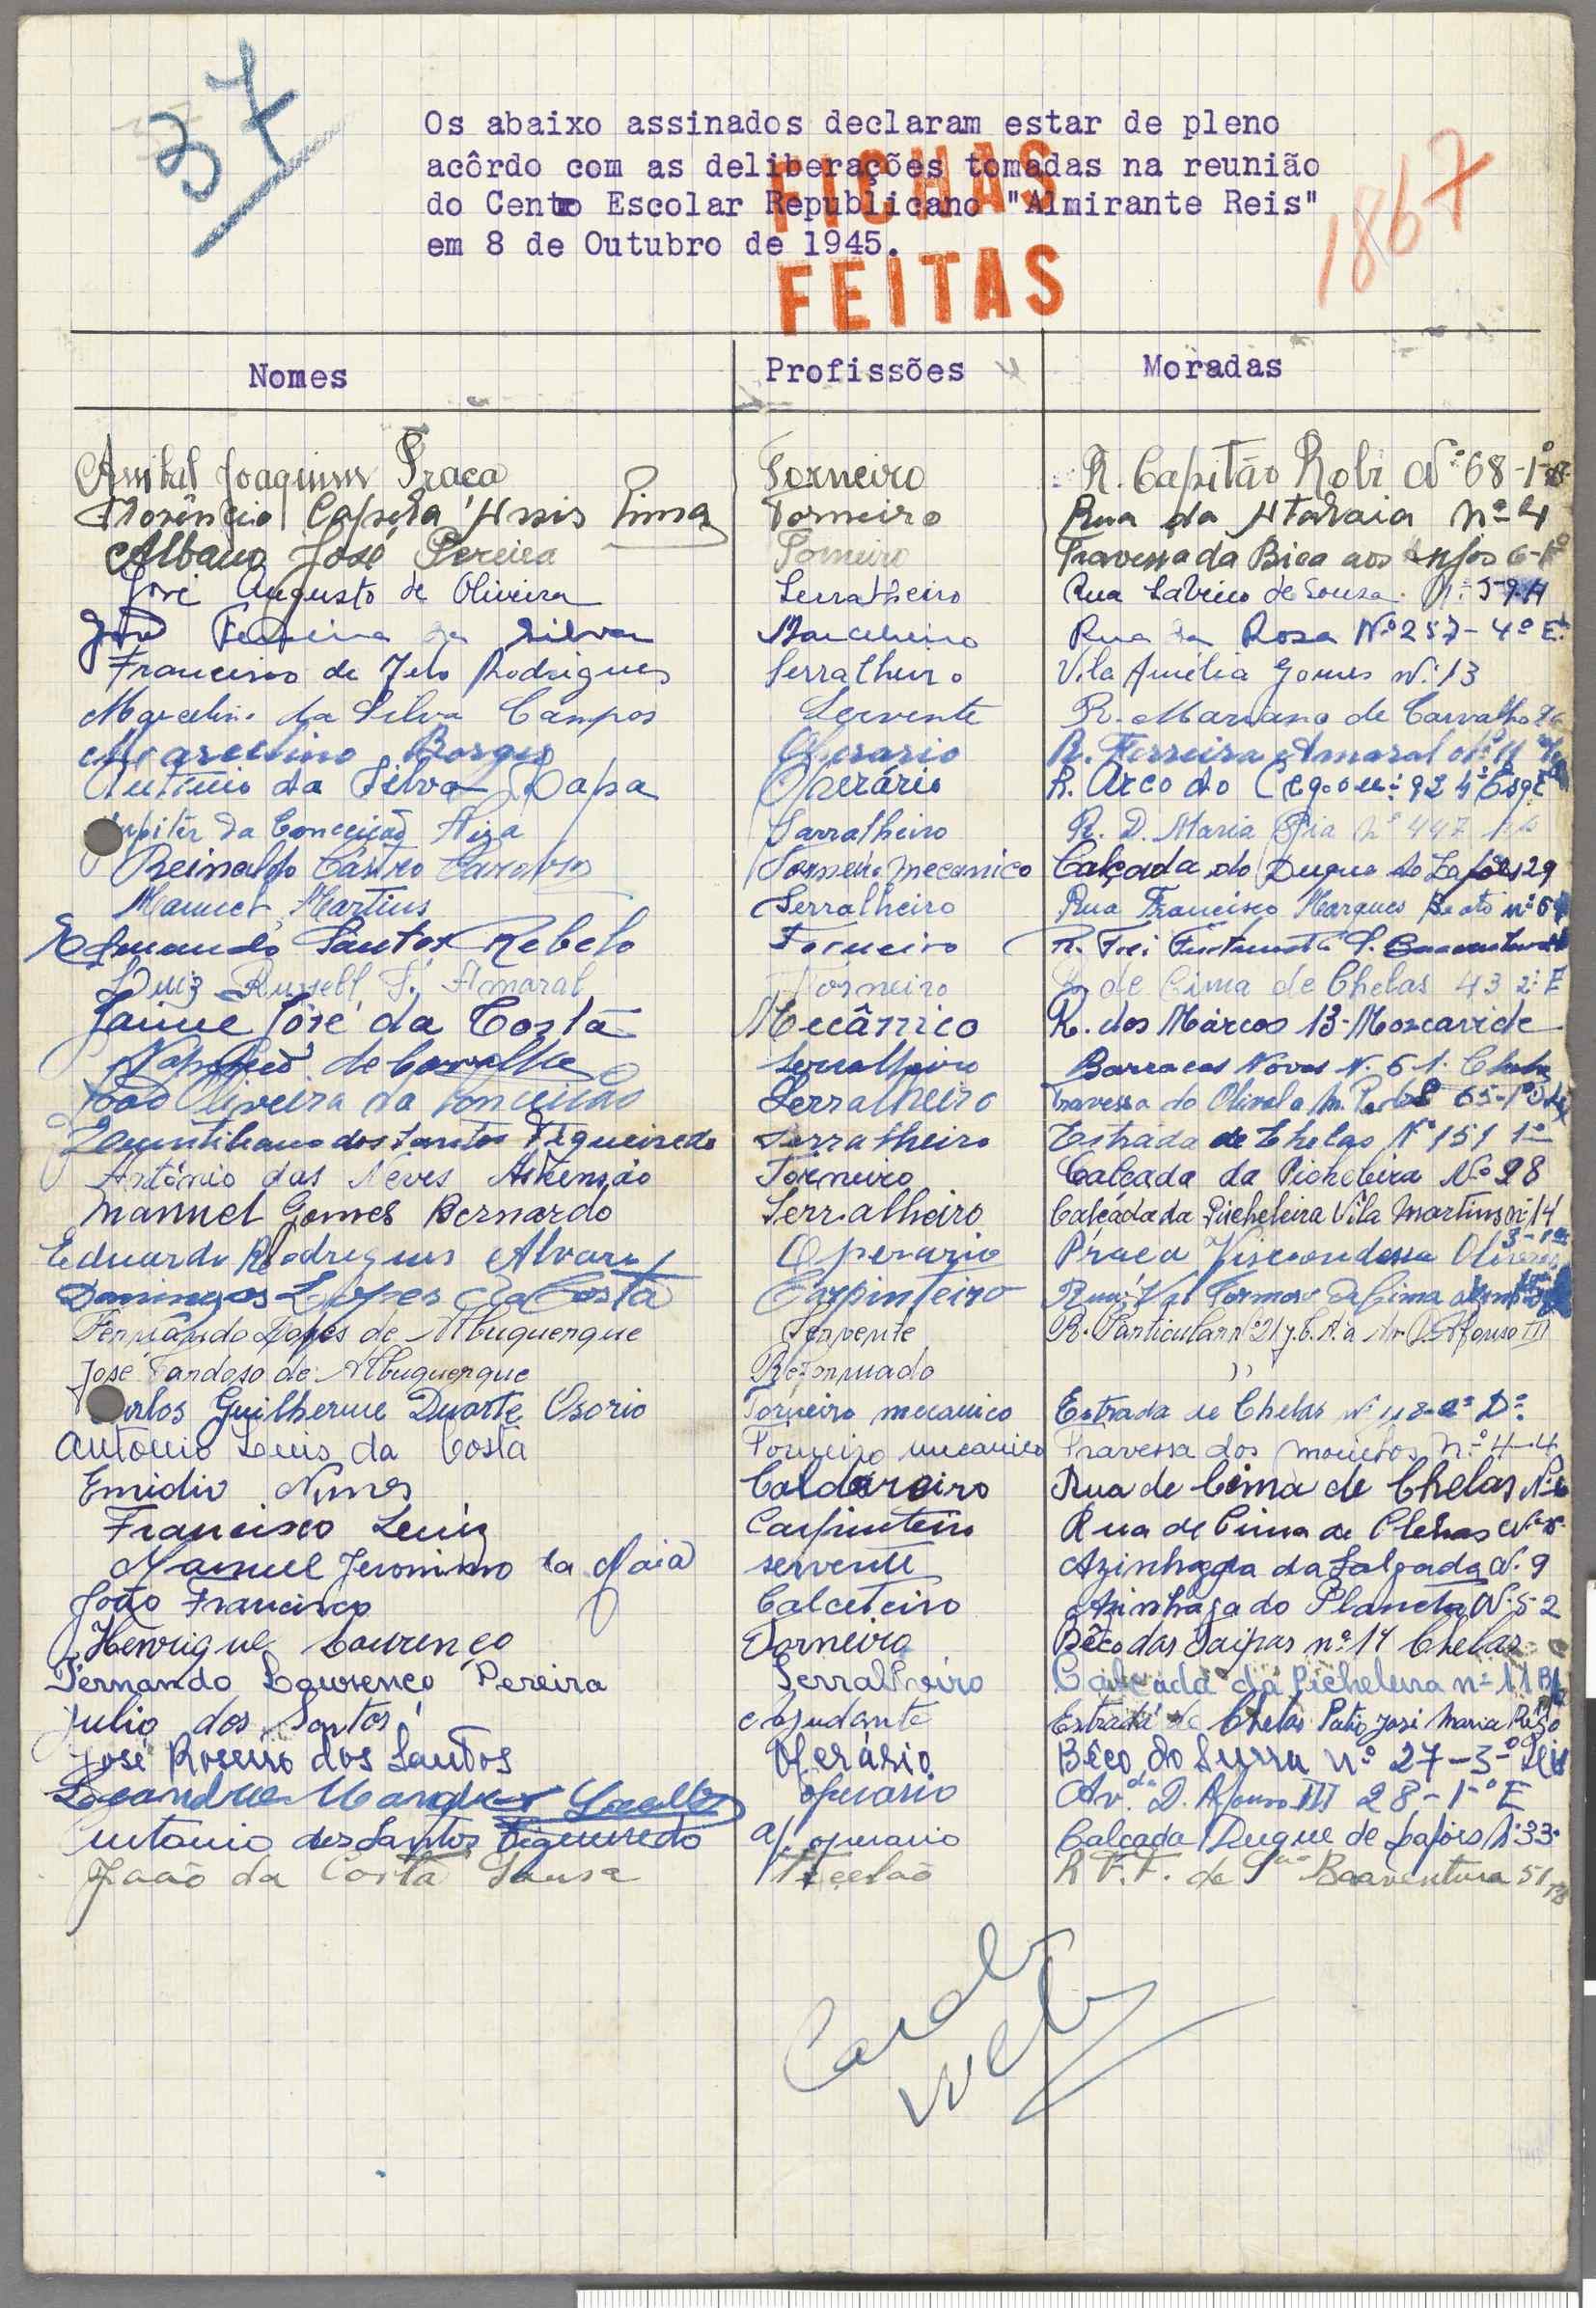 37
Os abaixo assinados declaram estar de pleno
acôrdo com as deliberações tomadas na reunião
do Centro Escolar Republicano "Almirante Reis"
em 8 de Outubro de 1945.
FICHAS
FEITAS
1867
Nomes Profissões Moradas
Anibal Joaquim Praca Torneiro R. Capitão Robi Nº 68-1º
Florêncio Capela Assis Lima Torneiro Rua da Atalaia nº 4
Albano José Pereira Torneiro Travessa da Bica aos Anjos 6-1º
José Augusto de Oliveira Serralheiro Rua de Sousa
José Ferreira da Silva Marceneiro Rua da Rosa Nº 257-4º E.
Francisco de Melo Rodrigues Serralheiro Vila Amélia Gomes Nº 13
Marcelino da Silva Campos Servente R. Mariano de Carvalho
Marcelino Borges Operario R. Ferreira Amaral
António da Silva Papa Operário R. Arco do Cego 92 4º Esqº
da Conceição Serralheiro R. D. Maria Pia nº 447
Reinaldo Castro Torneiro mecanico Calçada do Duque de Lafões 29
Manuel Martins Serralheiro Rua Francisco Marques Beato nº
Santos Rebelo Torneiro R. Frei
Luiz Russell F. Amaral Torneiro R. de Cima de Chelas 43 2º E
Jaime José da Costa Mecânico R. dos Marcos 13-Moscavide
de Carvalho Serralheiro Barracas Novas N. 61.
João Oliveira da Conceição Serralheiro Travessa do Olival a M. 65-1º
Quintiliano dos Santos Figueiredo Serralheiro Estrada de Chelas Nº 151 1º
António das Neves Ascensão Torneiro Calçada da Picheleira Nº 28
Manuel Gomes Bernardo Serralheiro Calçada da Picheleira Vila Martins nº 14
Eduardo Rodrigues Alvares Operario Praça Viscondessa Olivais 3-1º
Domingos Lopes da Costa Carpinteiro Rua Val Formoso de Cima
Fernando Lopes de Albuquerque Servente R. Particular nº 21 J.C.A. a Av. D. Afonso III
José Cardoso de Albuquerque Reformado "
Carlos Guilherme Duarte Osorio Torneiro mecanico Estrada de Chelas Nº 48-2º Dº
António Luis da Costa Torneiro mecanico Travessa dos nº 4-4
Emidio Nunes Caldereiro Rua de Cima de Chelas Nº
Francisco Luiz Carpinteiro Rua de Cima de Chelas Nº
Manuel Jeronimo da Maia servente Azinhaga da Salgada Nº 9
João Francisco Calceteiro Azinhaga do Planeta Nº 52
Henrique Lourenço Torneiro Bêco das Taipas nº 14 Chelas
Fernando Lourenço Pereira Serralheiro Calçada da Picheleira nº 11
Julio dos Santos ajudante Estrada de Chelas Patio José Maria
José Roseiro dos Santos Operário Bêco do nº 27-3º
Leandro operario Avª D. Afonso III 28-1º E
Antonio dos Santos Figueiredo a/ operario Calçada Duque de Lafões Nº 33
João da Costa Sousa Tecelão R F.F. de S. Boaventura 51